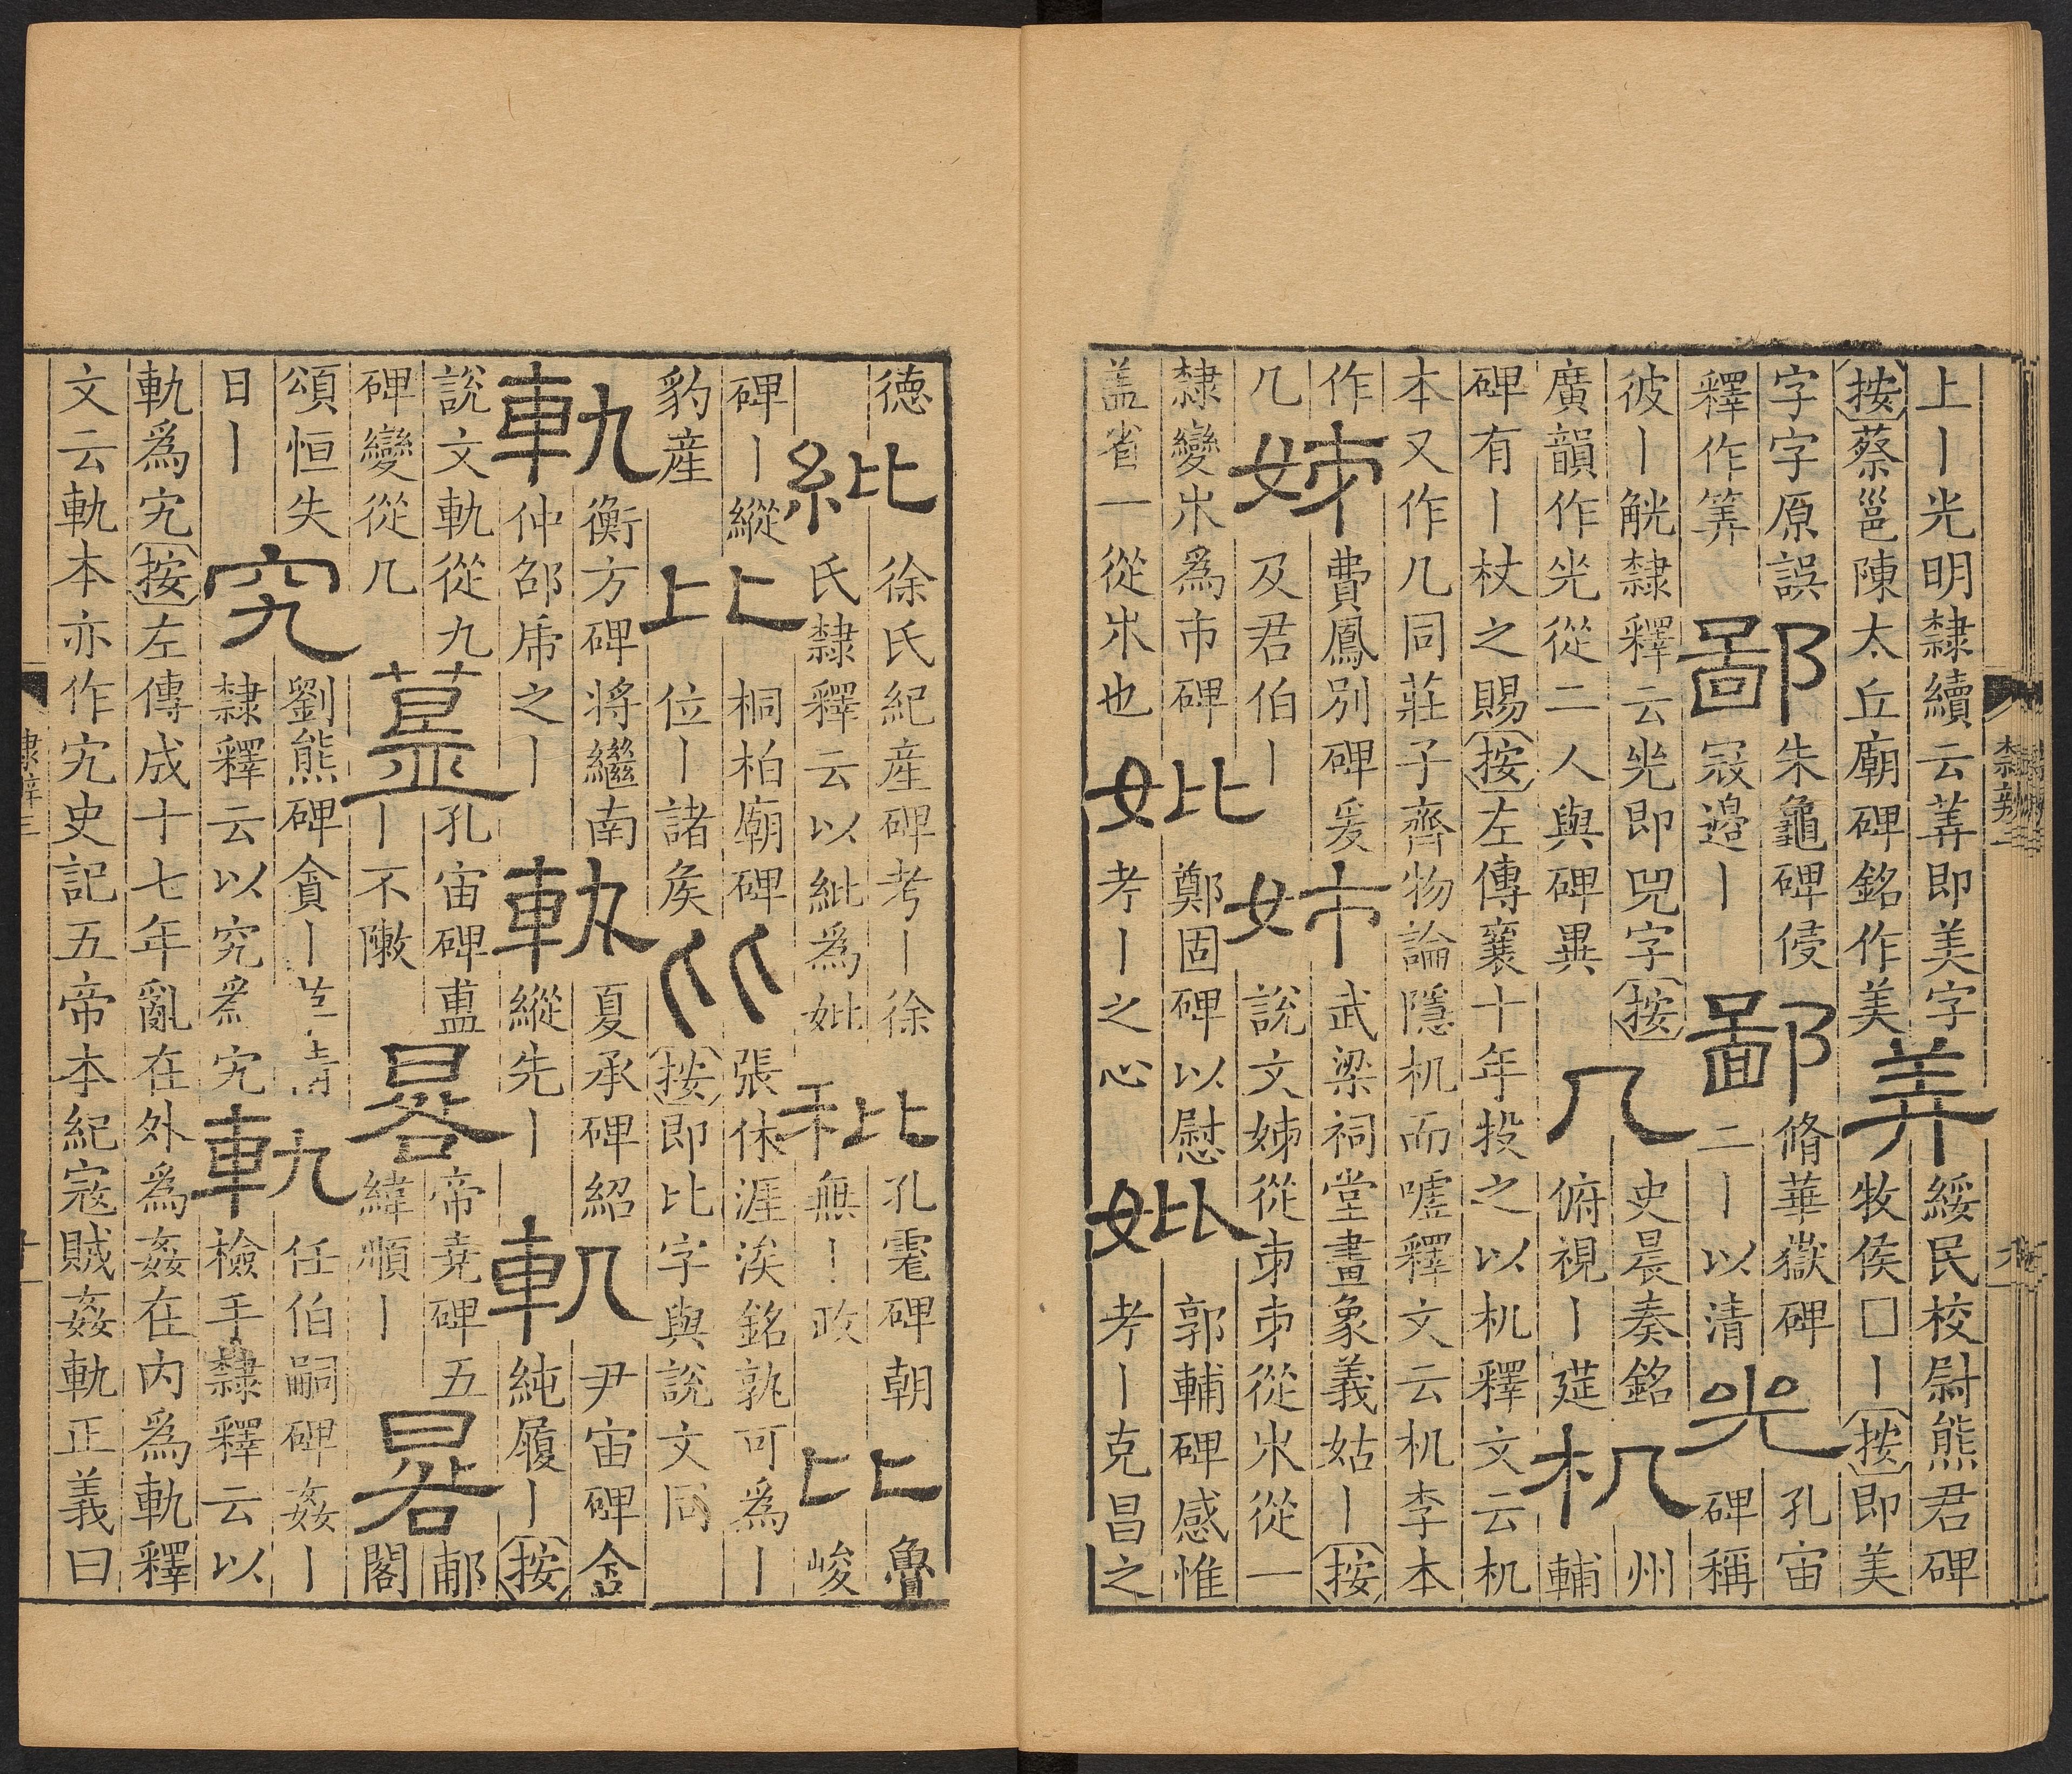 上丨光明隸續云羙即美字按蔡邕陳太丘廟碑銘作美羙綏民校尉熊君碑牧侯□丨按即美
字字原誤釋作筭鄙朱龜碑侵寇邊丨鄙脩華嶽碑二丨以清光孔宙碑稱
彼丨觥隸釋云光即兕字按廣韻作光從二人與碑異几史晨奏銘俯視丨筵机州輔
碑有丨杖之賜按左傳襄十年投之以机釋文云机本又作几同莊子齊物論隱机而嘘釋文云机李本
作几姊費鳳別碑爰及君伯丨姉武梁祠堂畫象義姑丨按說文姊從𠂔𠂔從𣎵從一
隸變𣎵爲市碑蓋省一從𣎵也妣鄭固碑以慰考丨之心妣郭輔碑感惟考丨克昌之
隸辨三
德紕徐氏紀産碑考丨徐氏隸釋云以紕爲妣秕孔霍碑朝無丨政比魯峻
碑丨縱豹産比桐柏廟碑位丨諸矦比張休涯涘銘孰可爲丨按即比字與說文同
軌衡方碑將繼南仲邵虎之丨軌夏承碑紹縱先丨軌尹宙碑含純履丨按
說文軌從九碑變從几簋孔宙碑簠丨不敶晷帝堯碑五緯順丨晷郙閣
頌恒失日丨究劉熊碑貪丨清隸釋云以究爲宄軌任伯嗣碑姦丨檢手隸釋云以
軌爲宄按左傳成十七年亂在外爲姦在内爲軌釋文云軌本亦作宄史記五帝本紀寇賊姦軌正義曰
隸辨三
十一